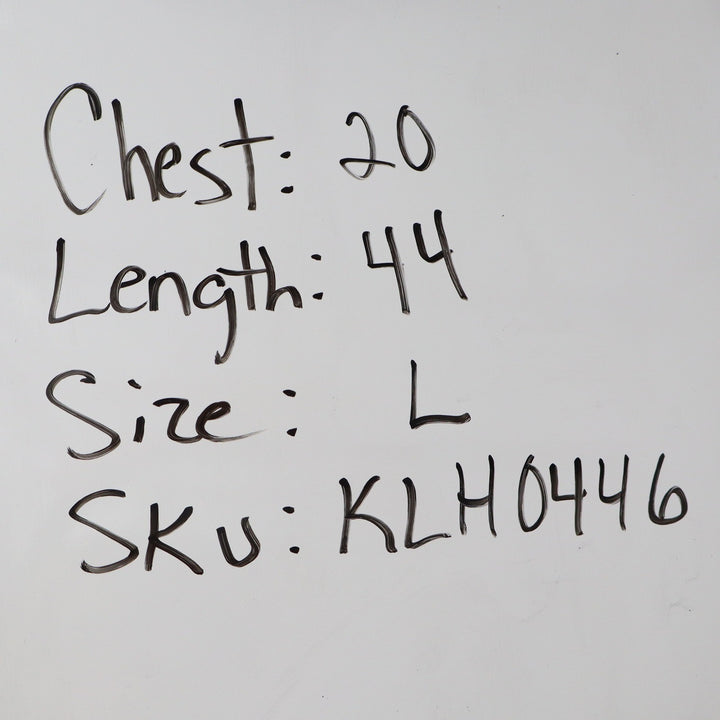 Chest: 20
Length: 44
Size: L
SKU: KLH0446